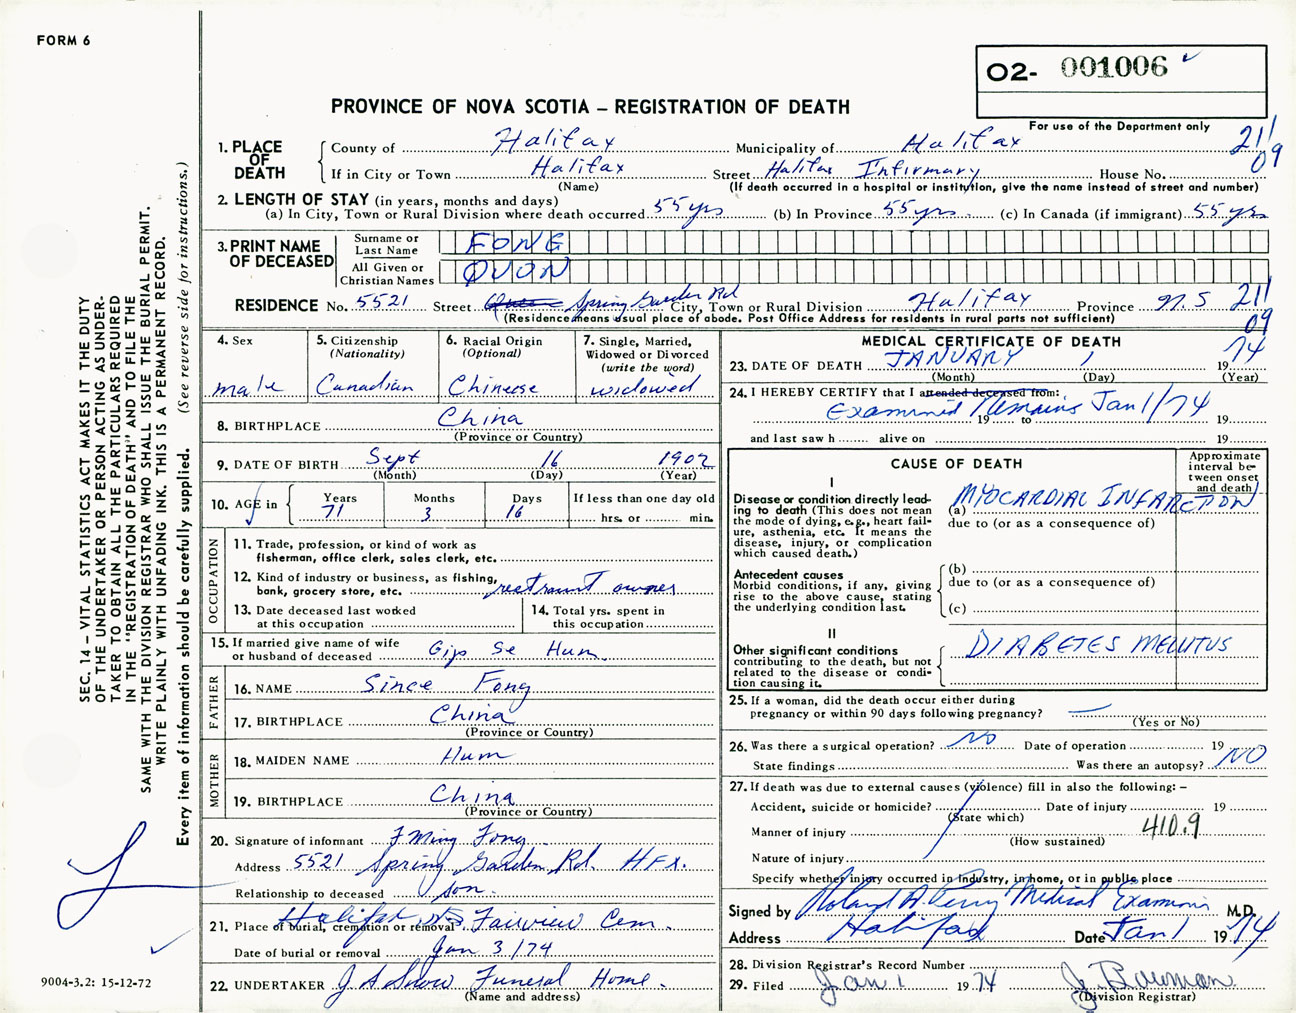 FORM 6
O2- 001006
PROVINCE OF NOVA SCOTIA – REGISTRATION OF DEATH
For use of the Department only
211
09
1. PLACE OF DEATH
County of Halifax Municipality of Halifax
If in City or Town Halifax Street Halifax Infirmary House No.
(Name) (If death occurred in a hospital or institution, give the name instead of street and number)
2. LENGTH OF STAY (in years, months and days)
(a) In City, Town or Rural Division where death occurred 55 yrs (b) In Province 55 yrs (c) In Canada (if immigrant) 55 yrs
3. PRINT NAME OF DECEASED
Surname or Last Name FONG
All Given or Christian Names QUON
RESIDENCE No. 5521 Street Spring Garden Rd City, Town or Rural Division Halifax Province N.S 211
(Residence means usual place of abode. Post Office Address for residents in rural parts not sufficient)
09
4. Sex
male
5. Citizenship
(Nationality)
Canadian
6. Racial Origin
(Optional)
Chinese
7. Single, Married,
Widowed or Divorced
(write the word)
widowed
8. BIRTHPLACE China
(Province or Country)
9. DATE OF BIRTH Sept 16 1902
(Month) (Day) (Year)
10. AGE in
Years Months Days If less than one day old
71 3 16 hrs. or min.
OCCUPATION
11. Trade, profession, or kind of work as
fisherman, office clerk, sales clerk, etc.
12. Kind of industry or business, as fishing,
bank, grocery store, etc. restraunt owner
13. Date deceased last worked
at this occupation
14. Total yrs. spent in
this occupation
15. If married give name of wife
or husband of deceased Gip Se Hum
FATHER
16. NAME Since Fong
17. BIRTHPLACE China
(Province or Country)
MOTHER
18. MAIDEN NAME Hum
19. BIRTHPLACE China
(Province or Country)
20. Signature of informant F Ming Fong
Address 5521 Spring Garden Rd. HFX.
Relationship to deceased son.
21. Place of burial, cremation or removal Halifax NS Fairview Cem.
Date of burial or removal Jan 3/74
22. UNDERTAKER J A Snow Funeral Home.
(Name and address)
MEDICAL CERTIFICATE OF DEATH
23. DATE OF DEATH JANUARY 1 1974
(Month) (Day) (Year)
24. I HEREBY CERTIFY that I attended deceased from:
Examined Remains Jan 1/74
19 to 19
and last saw h alive on 19
CAUSE OF DEATH
Approximate
interval be-
tween onset
and death
I
Disease or condition directly lead-
ing to death (This does not mean
the mode of dying, e.g., heart fail-
ure, asthenia, etc. It means the
disease, injury, or complication
which caused death.)
(a) MYOCARDIAL INFARCTION
due to (or as a consequence of)
Antecedent causes
Morbid conditions, if any, giving
rise to the above cause, stating
the underlying condition last.
(b)
due to (or as a consequence of)
(c)
II
Other significant conditions
contributing to the death, but not
related to the disease or condi-
tion causing it.
DIABETES MELLITUS
25. If a woman, did the death occur either during
pregnancy or within 90 days following pregnancy?
(Yes or No)
26. Was there a surgical operation? NO Date of operation 19
State findings Was there an autopsy? NO
27. If death was due to external causes (violence) fill in also the following: –
Accident, suicide or homicide? Date of injury 19
(State which)
Manner of injury 410.9
(How sustained)
Nature of injury
Specify whether injury occurred in industry, in home, or in public place
Signed by Roland A. Perry Medical Examiner M.D.
Address Halifax Date Jan 1 1974
28. Division Registrar's Record Number
29. Filed Jan 1 1974 J. Bowman
(Division Registrar)
SEC. 14 – VITAL STATISTICS ACT MAKES IT THE DUTY
OF THE UNDERTAKER OR PERSON ACTING AS UNDER-
TAKER TO OBTAIN ALL THE PARTICULARS REQUIRED
IN THE "REGISTRATION OF DEATH" AND TO FILE THE
SAME WITH THE DIVISION REGISTRAR WHO SHALL ISSUE THE BURIAL PERMIT.
WRITE PLAINLY WITH UNFADING INK. THIS IS A PERMANENT RECORD.
Every item of information should be carefully supplied. (See reverse side for instructions.)
9004-3.2: 15-12-72